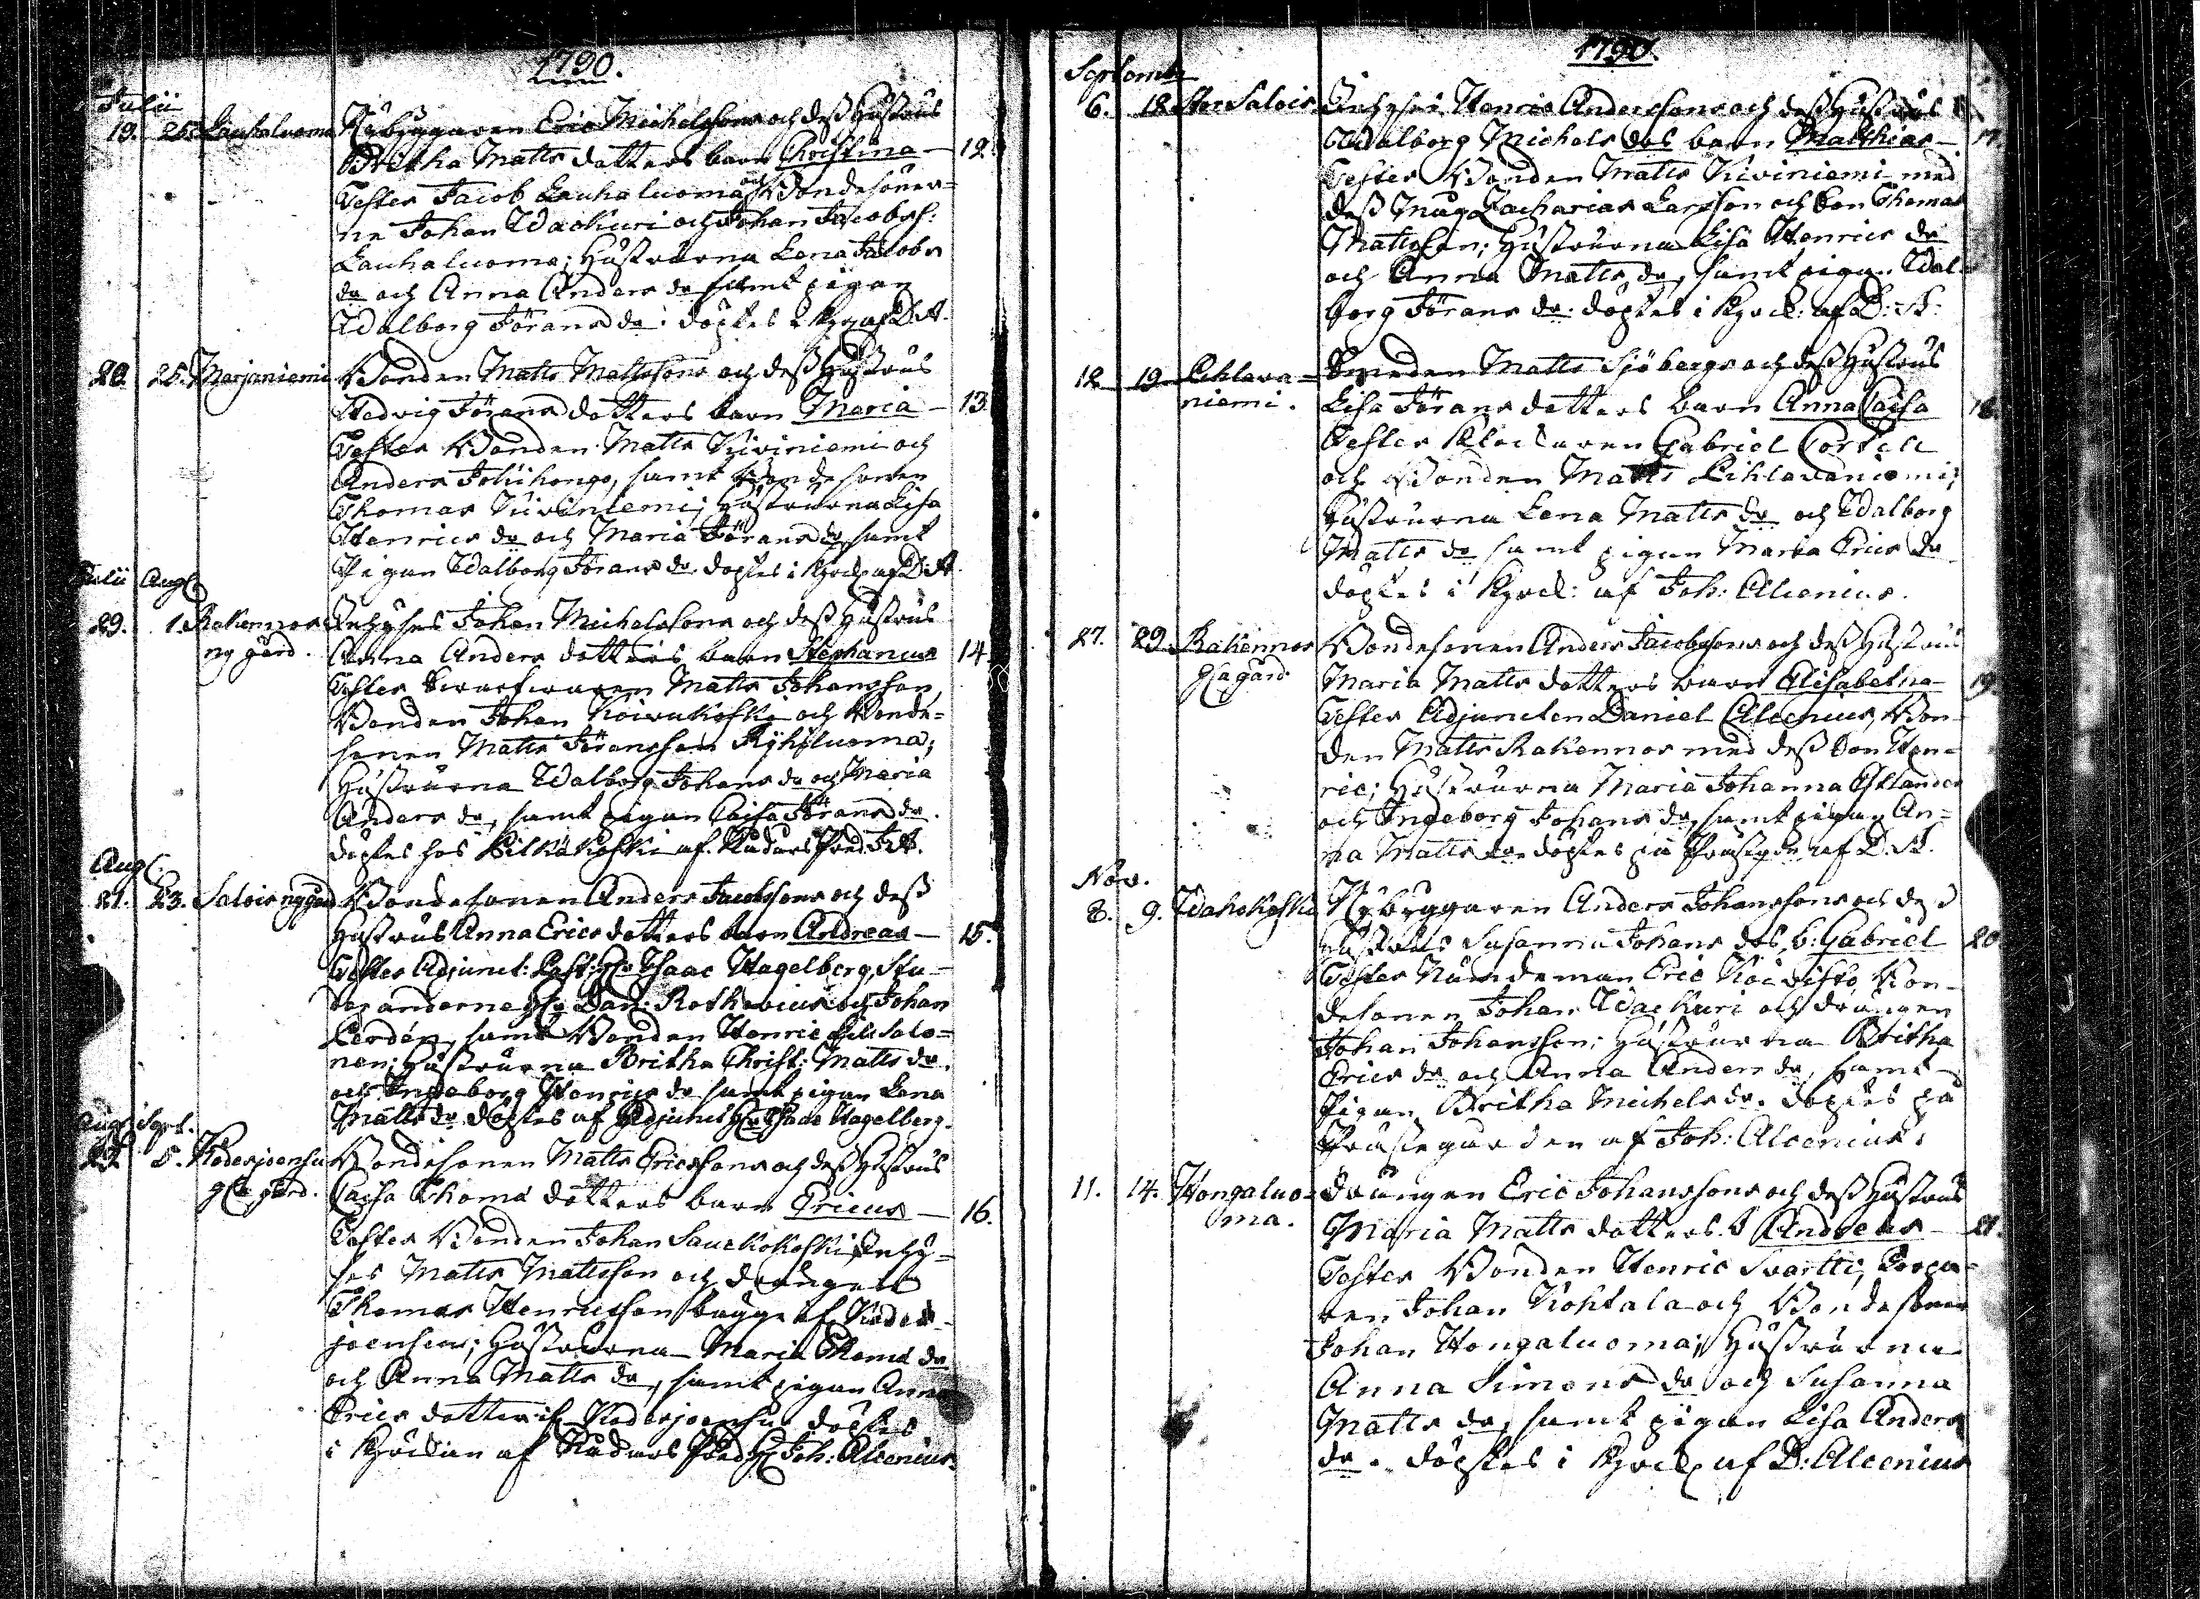 1790.
Julii
19. 25. Lauhaluoma Nybyggaren Eric Michelssons och dess Hustrus
Britha Matts dotters barn Christina — 12.
Tester Jacob Lauhaluoma och Bondesöner=
ne Johan Wackuri och Johan Jacobss:
Lauhaluoma; Hustrurna Lena Jacobs
dr och Anna Anders dr samt pigan
Walborg Jörans dr. döptes i Kyrck af D. A.
20. 25. Marjaniemi Bonden Matts Mattssons och dess Hustrus
Hedvig Jörans dotters barn Maria — 13.
Tester Bonden Matts Kiviniemi och
Anders samt Bondesonen
Thomas Kiviniemi; Hustrurna Lisa
Henrics dr och Maria Jörans dr samt
Pigan Walborg Jörans dr. döptes i Kyrck af D. A.
Julii Aug:
29. 1. Rakennos Inhyses Johan Michelssons och dess Hustrus
ny gård. Anna Anders dotters barn Stephanus 14.
Tester Matts Johansson,
Bonden Johan Koivukoski och Bonde=
sonen Matts Jöransson Kyhyluoma;
Hustrurna Walborg Johans dr och Maria
Anders dr, samt pigan Caisa Jörans dr.
döptes hos Pilkäkoski af J. A.
Aug:
21. 23. Salois ny gård Bondesonen Anders Jacobssons och dess
Hustrus Anna Erics dotters barn Andreas — 15.
Tester Adjunct: Past: Hr Isaac Hagelberg, Stu=
deranderne Hr Dan: Rothovius och Johan
samt Bonden Henric Salo=
nen; Hustrurna Britha Christ: Matts dr.
och Ingeborg Henrics dr samt pigan Lena
Matts dr. döptes af Adjunct Hr Isaac Hagelberg.
Aug: Sept.
5. Kodesjoensu Bondesonen Matts Ericssons och dess Hustrus
gla gård. Caisa Thomæ dotters barn Ericus — 16.
Tester Bonden Johan Sauckokoski, Inhy=
ses Matts Mattsson och drängen
Thomas Henricsson bägge af Kodes=
joensuu; Hustrurna Maria Thomæ dr
och Anna Matts dr, samt pigan Anna
Erics dotter if. Kodesjoensu döptes
i Kyrckan af Hr Joh: Alcenius.
1790.
Septembr
6. 12. Salois Inhyses Henric Anderssons och dess Hustrus
Walborg Michels drs barn Matthias — 17
Tester Bonden Matts Kiviniemi med
dess Måg Zacharias Larsson och Son Thomas
Mattsson; Hustrurna Lisa Henrics dr
och Anna Matts dr, samt pigan Wal=
borg Jörans dr. döptes i Kyrck: af D: A:
12 19 Lihlava= Smeden Matts Sjöbergs och dess Hustrus
niemi. Lisa Jörans dotters barn Anna Caisa 18
Tester Klockaren Gabriel Cortell
och Bonden Matts Lihlavaniemi;
Hustrurna Lena Matts dr och Walborg
Matts dr samt pigan Maria Erics dr
döptes i Kyrck: af Joh: Alcenius.
27. 29. Rakennos Bondesonen Anders Jacobssons och dess Hustrus
gla gård. Maria Matts dotters barn Elisabetha — 19
Tester Adjuncten Daniel Alcenius, Bon=
den Matts Rakennos med dess Son Hen=
ric; Hustrurna Maria Johanna Estlander
och Ingeborg Johans dr, samt pigan An=
na Matts dr. döptes på Prästgdn af D. A.
Nov.
8. 9. Wahokoski Nybyggaren Anders Johanssons och dess
Hustrus Susanna Johans drs b: Gabriel 20
Tester Nämndeman Eric Koivisto, Bon=
desonen Johan Wackuri och drängen
Johan Johansson; Hustrurna Britha
Erics dr och Anna Anders dr, samt
Pigan Britha Michels dr. döptes på
Prästegården af Joh: Alcenius.
11. 14. Hongaluo= Drängen Eric Johanssons och dess Hustrus
ma. Maria Matts dotters b Andreas — 21.
Tester Bonden Henric Svartti, Torpa=
ren Johan Kohtala och Bondesonen
Johan Hongaluoma; Hustrurna
Anna Simons dr och Susanna
Matts dr, samt pigan Lisa Anders
dr. döptes i Kyrck af D: Alcenius